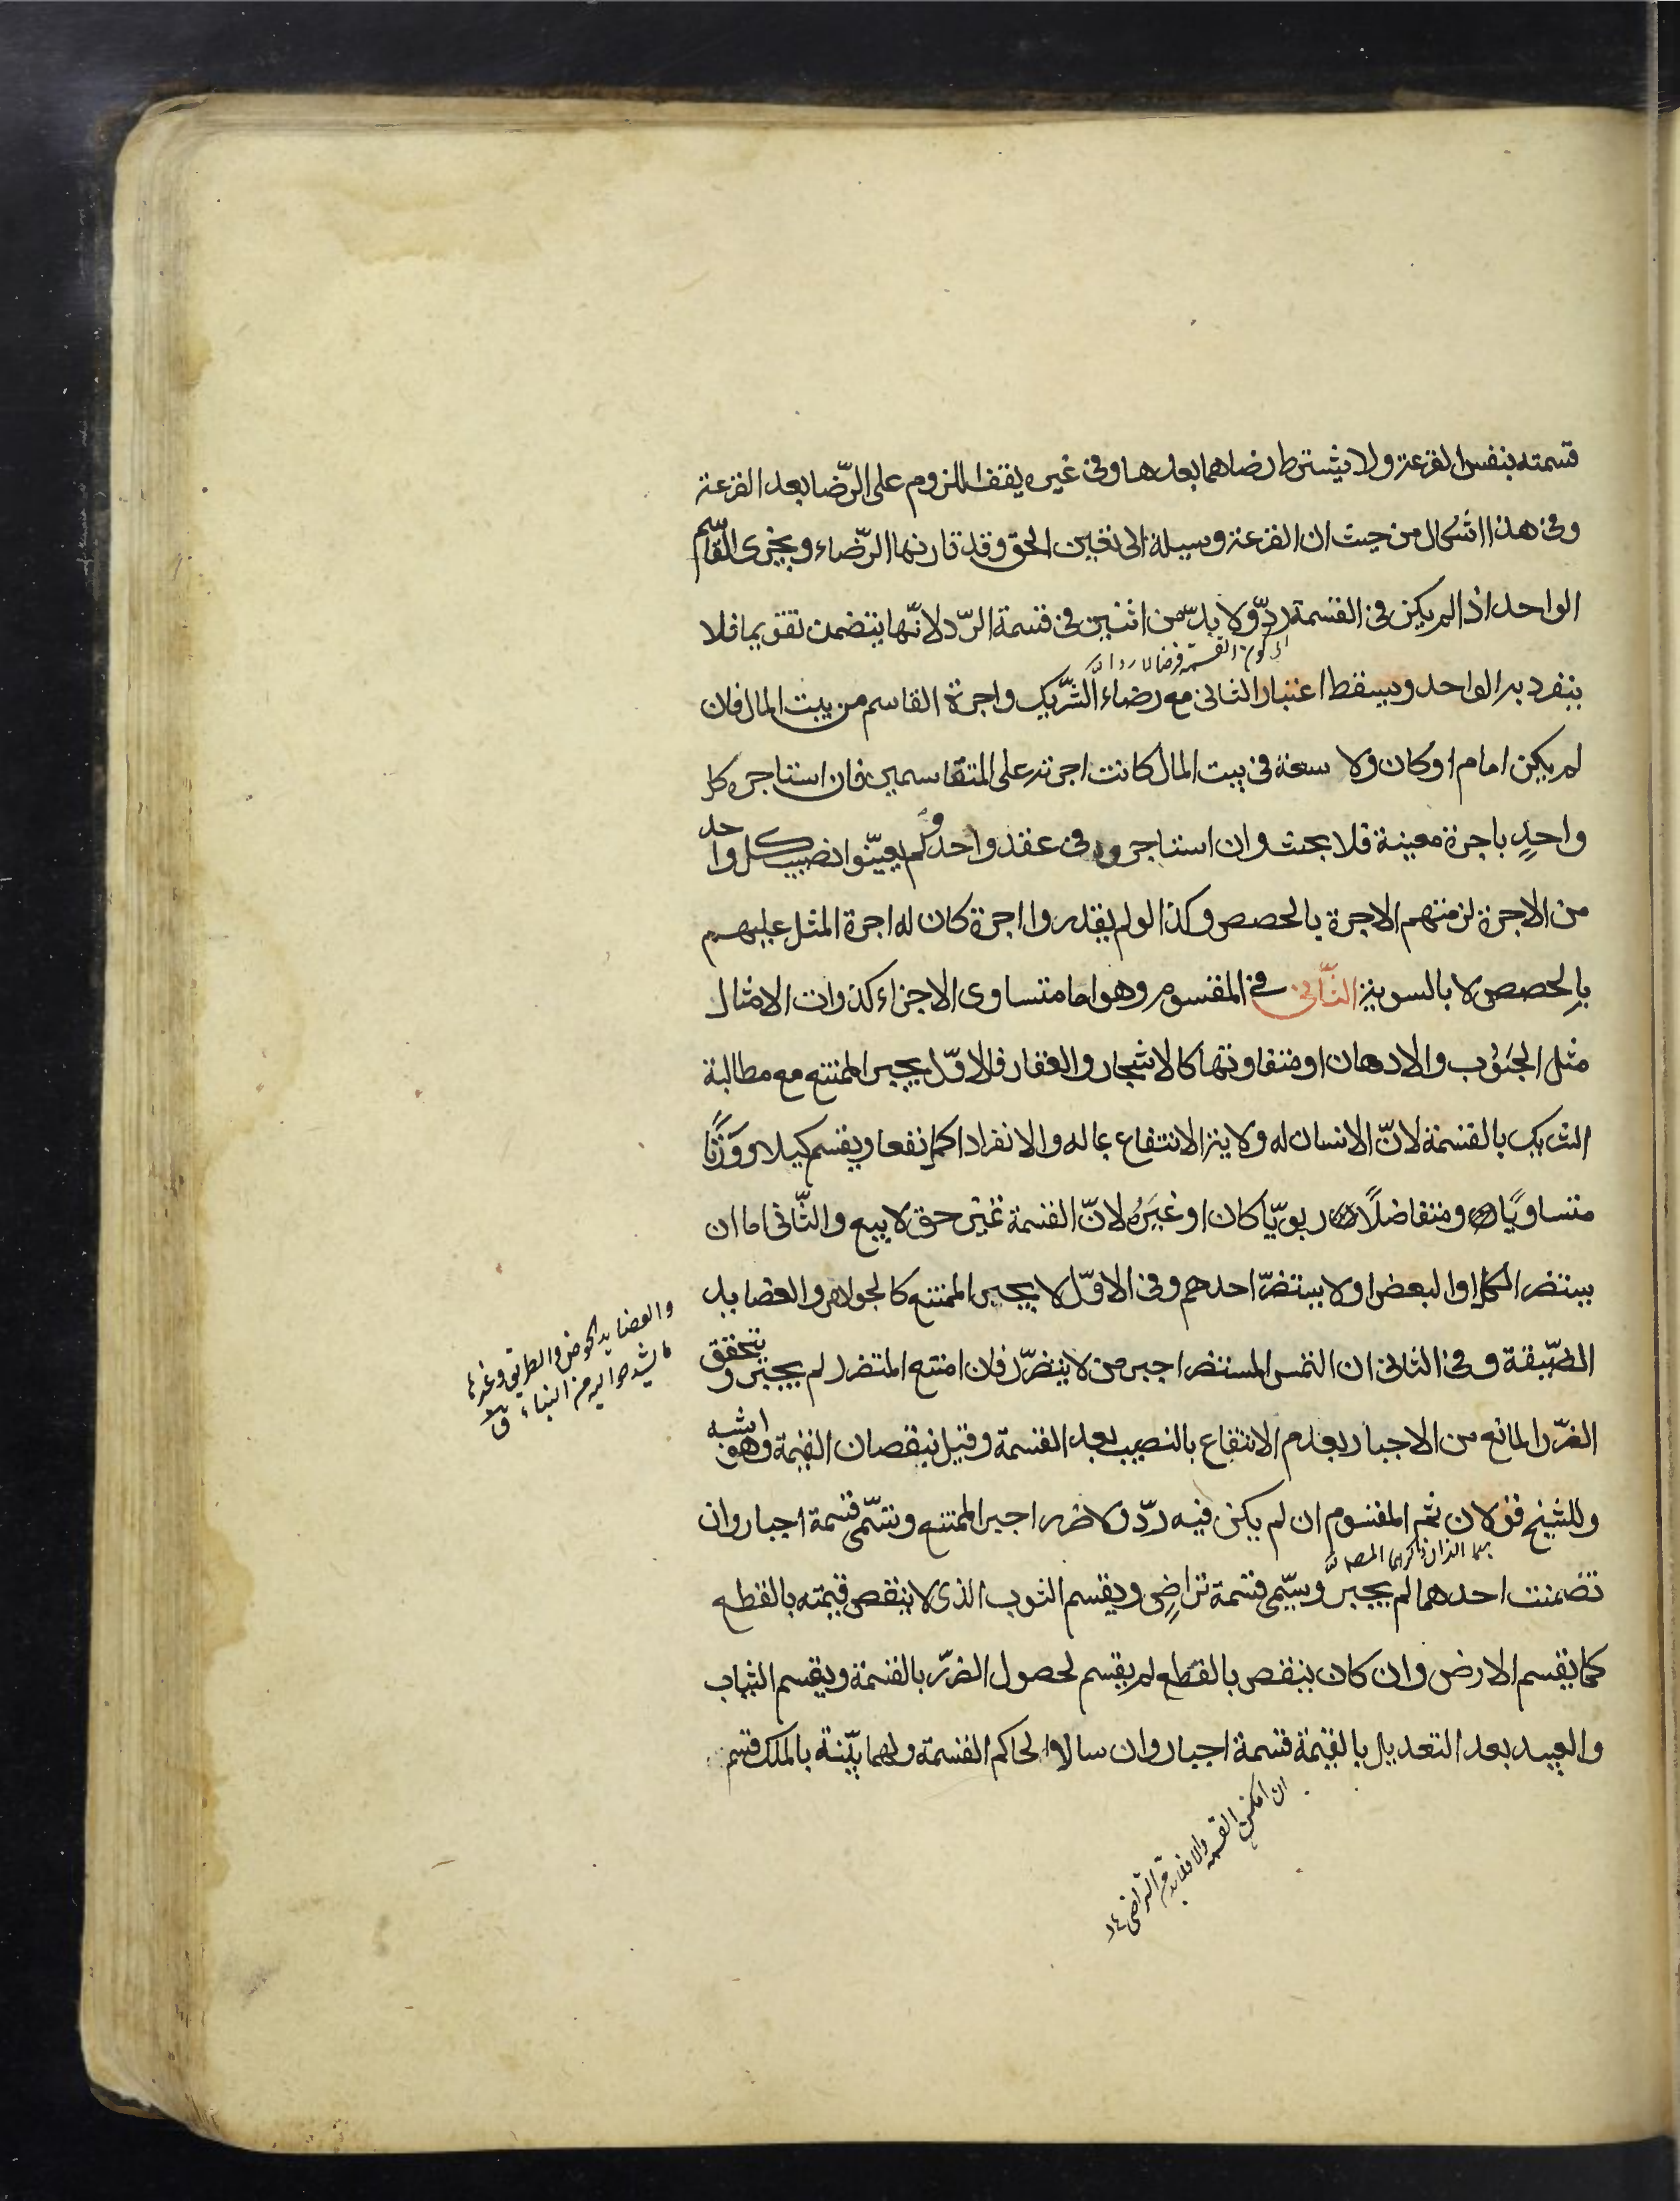 قسمته بنفس القرعة ولا يشترط رضاهما بعدها وفى غيره يقف اللزوم على الرّضا بعد القرعة
وفى هذا اشكال من حيث ان القرعة وسيلة الى تعيين الحق وقد قارنها الرّضاء ويجزى القاسم
الواحد اذا لم يكن فى القسمة ردّ ولا بدّ من اثنين فى قسمة الرّد لانّها يتضمن تقويما فلا
ينفرد به الواحد ويسقط اعتبار الثانى مع رضاء الشّريك واجرة القاسم من بيت المال فان
لم يكن امام او كان ولا سعة فى بيت المال كانت اجرته على المتقاسمين فان استاجره كل
واحدٍ باجرة معينة فلا بحث وان استاجروه فى عقد واحد ولم يعيّنوا نصيب كل واحد
من الاجرة لزمتهم الاجرة بالحصص وكذا لو لم يقدروا اجرة كان له اجرة المثل عليهم
بالحصص لا بالسوية الثّانى فى المقسوم وهو اما متساوى الاجزاء كذوات الامثال
مثل الحبُوب والادهان او متفاوتها كالاشجار والعقار فالاوّل يجبر الممتنع مع مطالبة
الشريك بالقسمة لانّ الانسان له ولاية الانتفاع بماله والانفراد اكمل نفعا ويقسم كيلا ووَزنًا
متساويًا ومتفاضلًا ربويّا كان او غيَرهُ لانّ القسمة تميّز حق لا بيع والثّانى اما ان
يستضر الكل او البعض او لا يستضرّ احدهم وفى الاوّل لا يجبر الممتنع كالجواهر والعضايد
الضّيقة وفى الثانى ان التمس المستضر اجبر من لا يتضرّر فان امتنع المتضرر لم يجبر ويتحقق
الضّرر المانع من الاجبار بعدم الانتفاع بالنصيب بعد القسمة وقيل بنقصان القيمة وهو اشبه
وللشيخ قولان ثم المقسوم ان لم يكن فيه ردّ ولا ضرر اجبر الممتنع وتسّمى قسمة اجبار وان
تضمنت احدهما لم يجبر ويسّمى قسمة تراضِى ويقسم الثوب الذى لا ينقص قيمته بالقطع
كما يقسم الارض وان كان ينقص بالقطع لم يقسم لحصول الضرّر بالقسمة ويقسم الثياب
والعبيد بعد التعديل بالقيمة قسمة اجبار وان سالا الحاكم القسمة ولهما بيّنة بالملك قسم
والعضايد الحوض والطريق وغيرها
ما يشيد حواليه من البناء
ان امكن القسمة والا فلا بد من التراضى